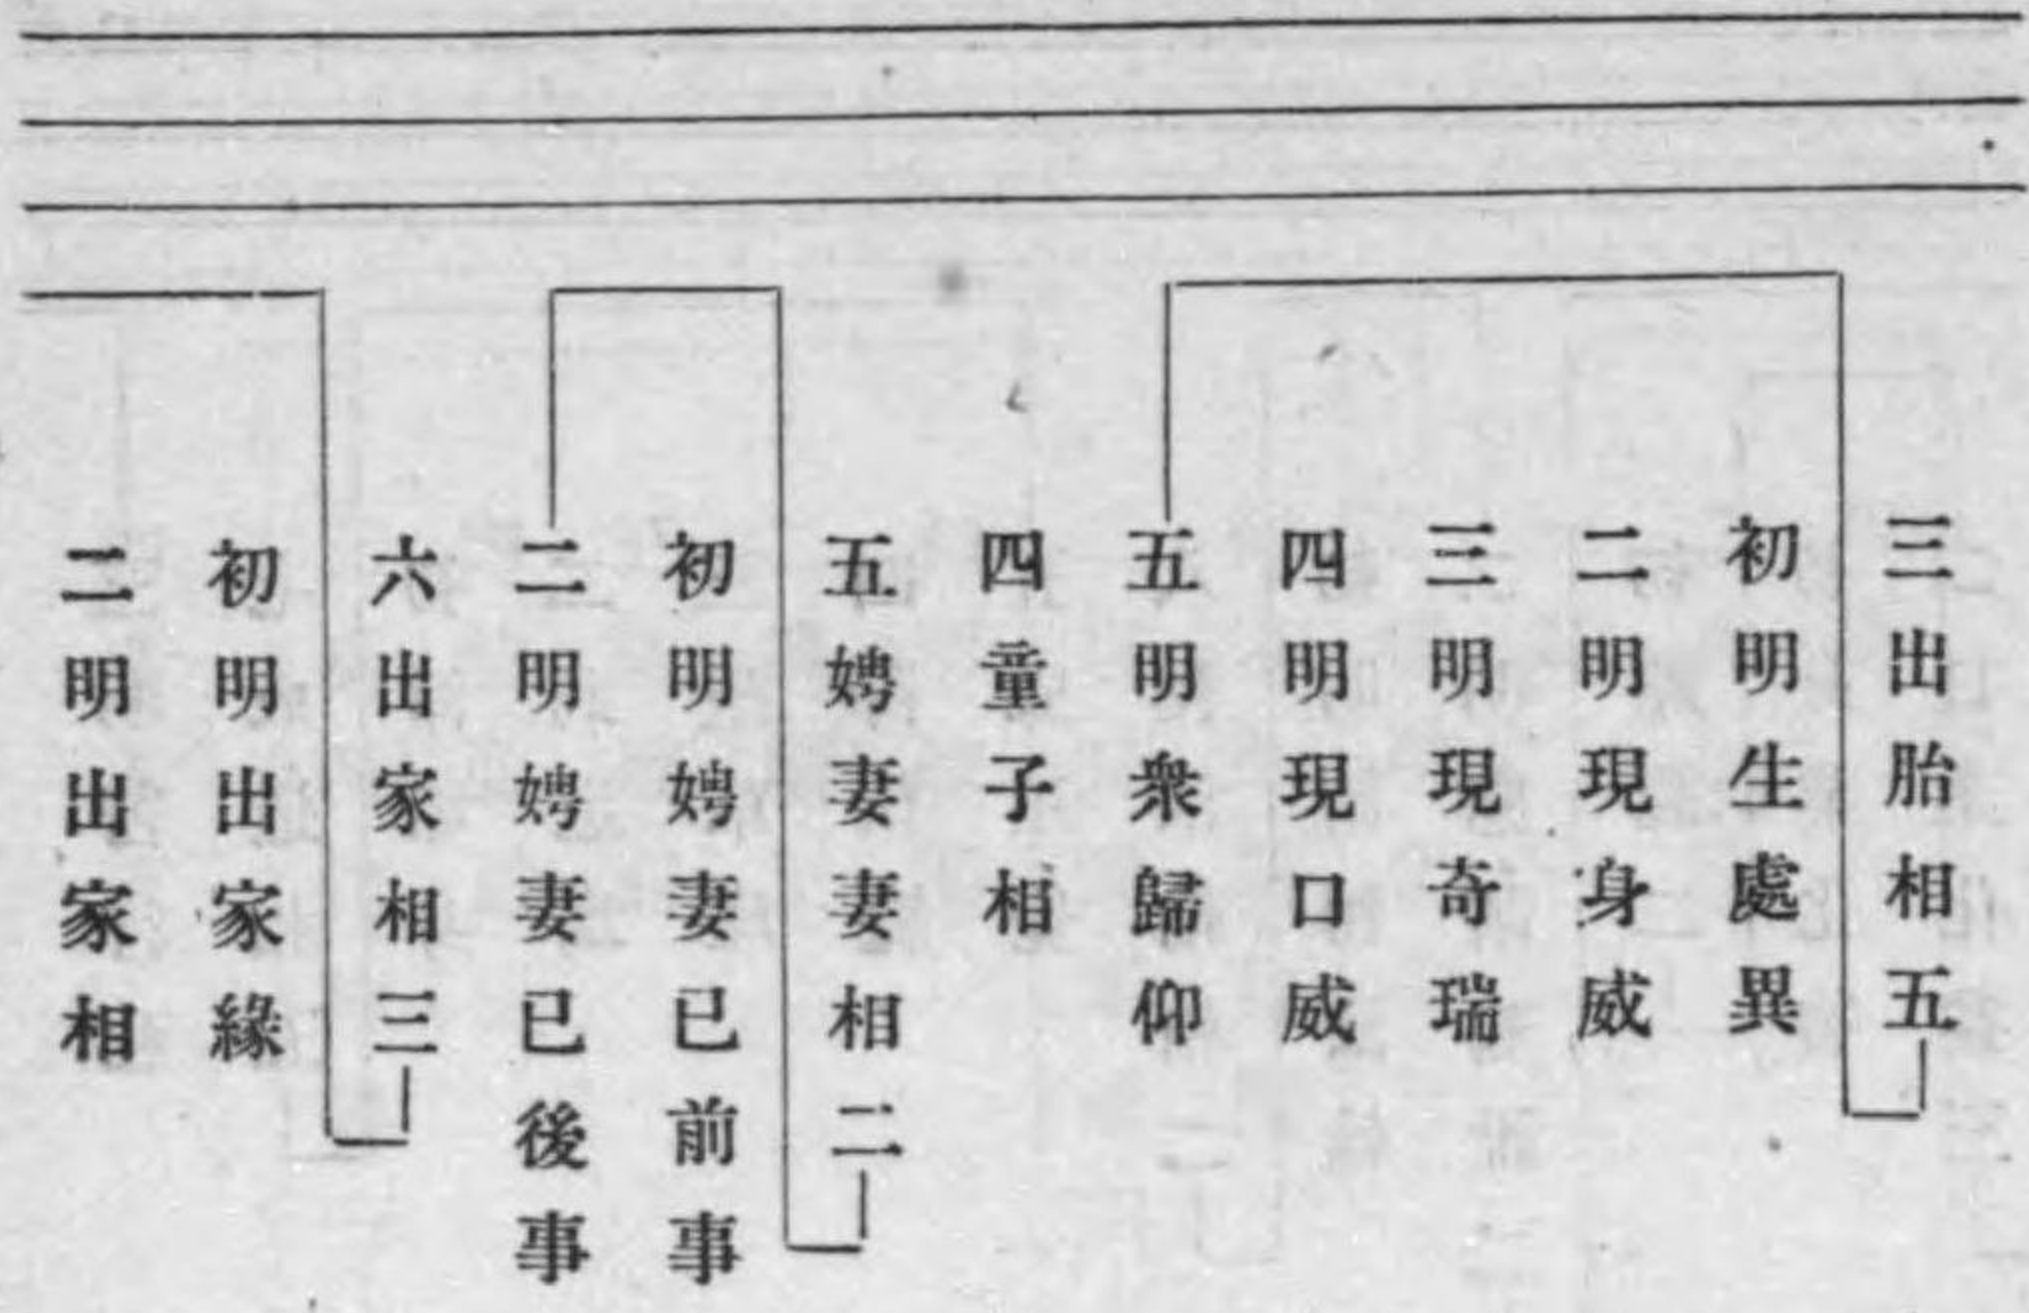 三出胎相五
初明生處異
二明現身威
三明現奇瑞
四明現口威
五明衆歸仰
四童子相
五娉妻妻相二
初明娉妻已前事
二明娉妻已後事
六出家相三
初明出家緣
二明出家相